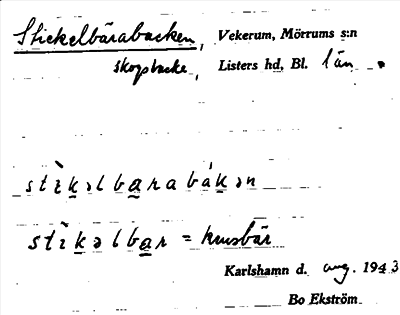 Stickelbärabacken, Vekerum, Mörrums s:n
skogsbacke, Listers hd, Bl. län
stìkəlbarabákən
stìkəlbar = krusbär
Karlshamn d. aug. 1943
Bo Ekström